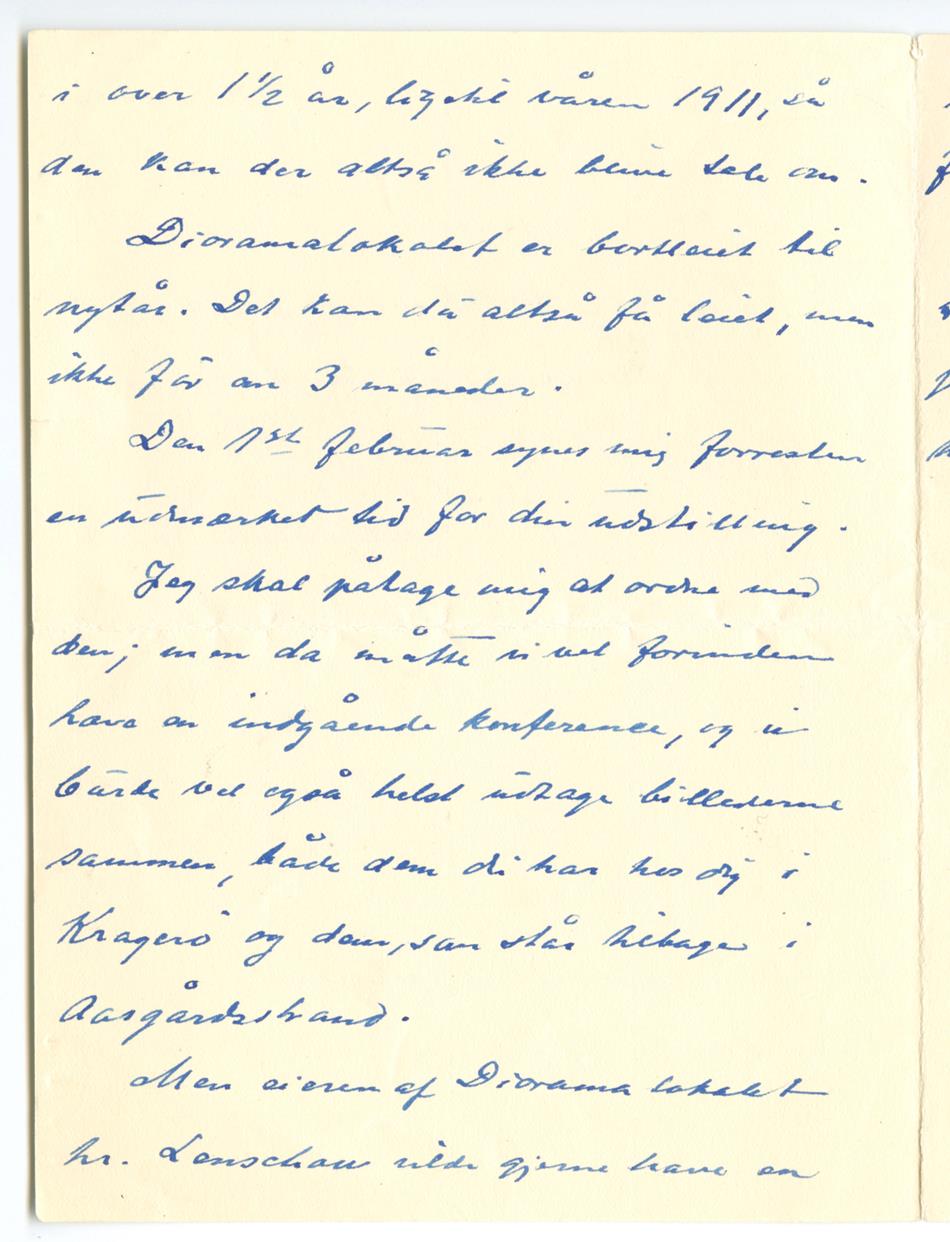 i over 1 1/2 år, til våren 1911, så
den kan der altså ikke blive tale om.
Dioramalokalet er bortleiet til
nytår. Det kan du altså få leiet, men
ikke før om 3 måneder.
Den 1st februar synes mig forresten
en udmærket tid for din udstilling.
Jeg skal påtage mig at ordne med
den; men da måtte vi vel forinden
have en indgående konference, og vi
burde vel også helst udtage billederne
sammen, både dem du har hos dig i
Kragerö og dem, som står tilbage i
Aasgårdsstrand.
Men eieren af Diorama lokalet
hr. Lenschau vilde gjerne have en